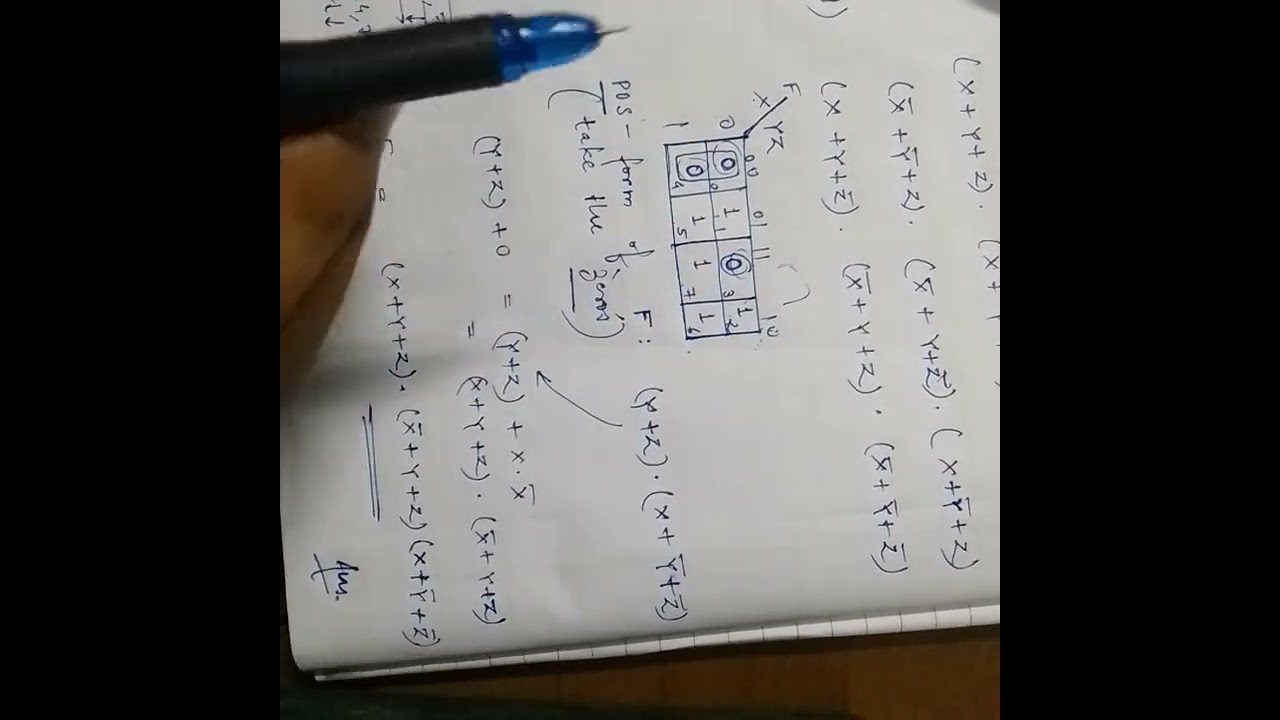 (x + y + z).
(x̄ + ȳ + z). (x̄ + y + z̄). (x + ȳ + z)
(x + y + z̄). (x̄ + y + z). (x̄ + ȳ + z̄)
F
x yz 00 01 11 10
0 0 0 1 1 0 3 1 2
1 0 4 1 5 1 7 1 6
POS - form of F: (y+z). (x + ȳ + z̄)
(take the zeros)
(y+z) + 0 = (y+z) + x.x̄
= (x + y + z). (x̄ + y + z)
F = (x + y + z). (x̄ + y + z) (x + ȳ + z̄)
Ans.